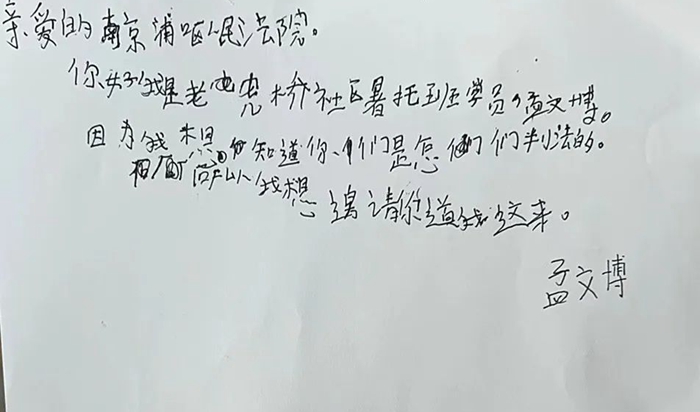 亲爱的南京浦口区人民法院。
你好我是老虎桥社区暑托班学员孟文博。
因为我想知道你们是怎们判法的。
所以我想邀请你道我这来。
孟文博